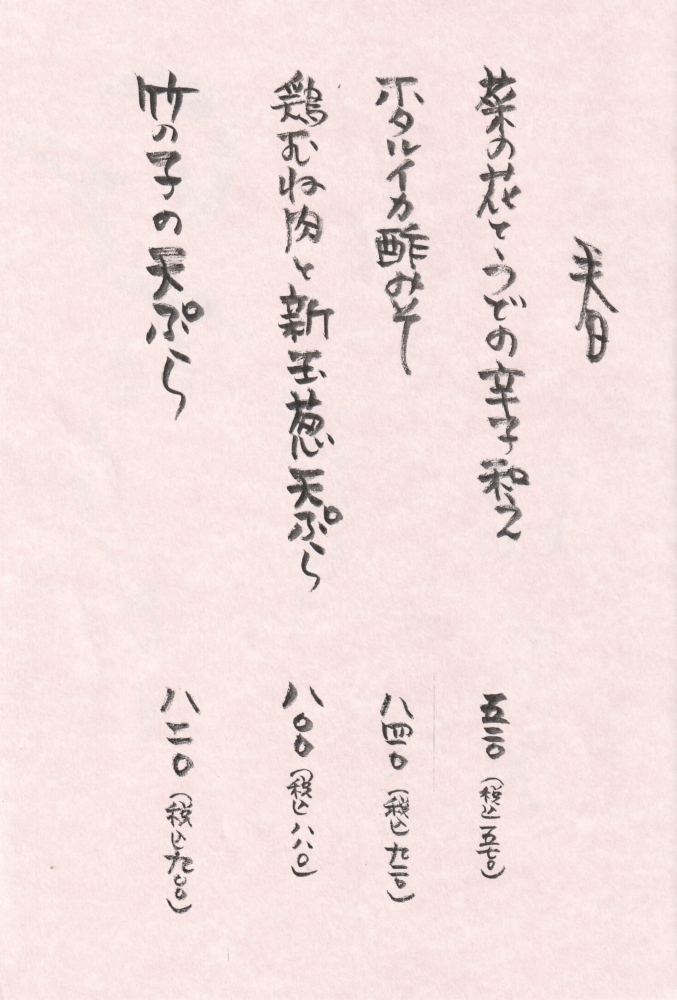 春
菜の花とうどの辛子和え 五二〇(税込五七〇)
ホタルイカ酢みそ 八四〇(税込九二〇)
鶏むね肉と新玉葱天ぷら 八〇〇(税込八八〇)
竹の子の天ぷら 八二〇(税込九〇〇)